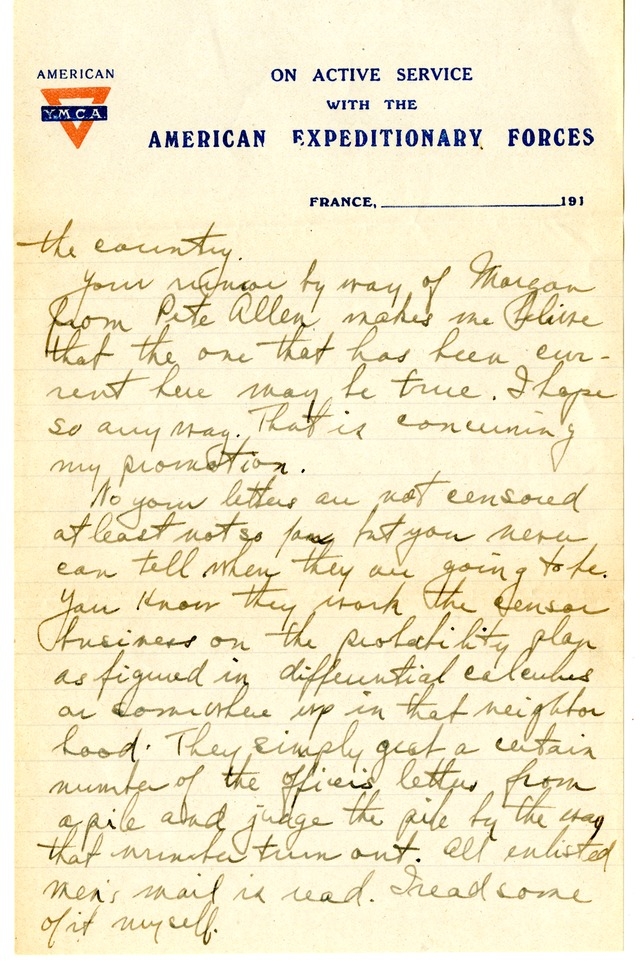 AMERICAN
Y.M.C.A.
ON ACTIVE SERVICE
WITH THE
AMERICAN EXPEDITIONARY FORCES
FRANCE, 191
the country.
Your rumor by way of Morgan
from Pete Allen, makes me believe
that the one that has been cur-
rent here may be true. I hope
so any way. That is concerning
my promotion.
No your letters are not censored
at least not so far but you never
can tell when they are going to be.
You know they work the censor
business on the probability plan
as figured in differential calculus
or somewhere up in that neighbor
hood. They simply grat a certain
number of the officers letters from
a pile and judge the pile by the way
that number turn out. All enlisted
men's mail is read. I read some
of it myself.